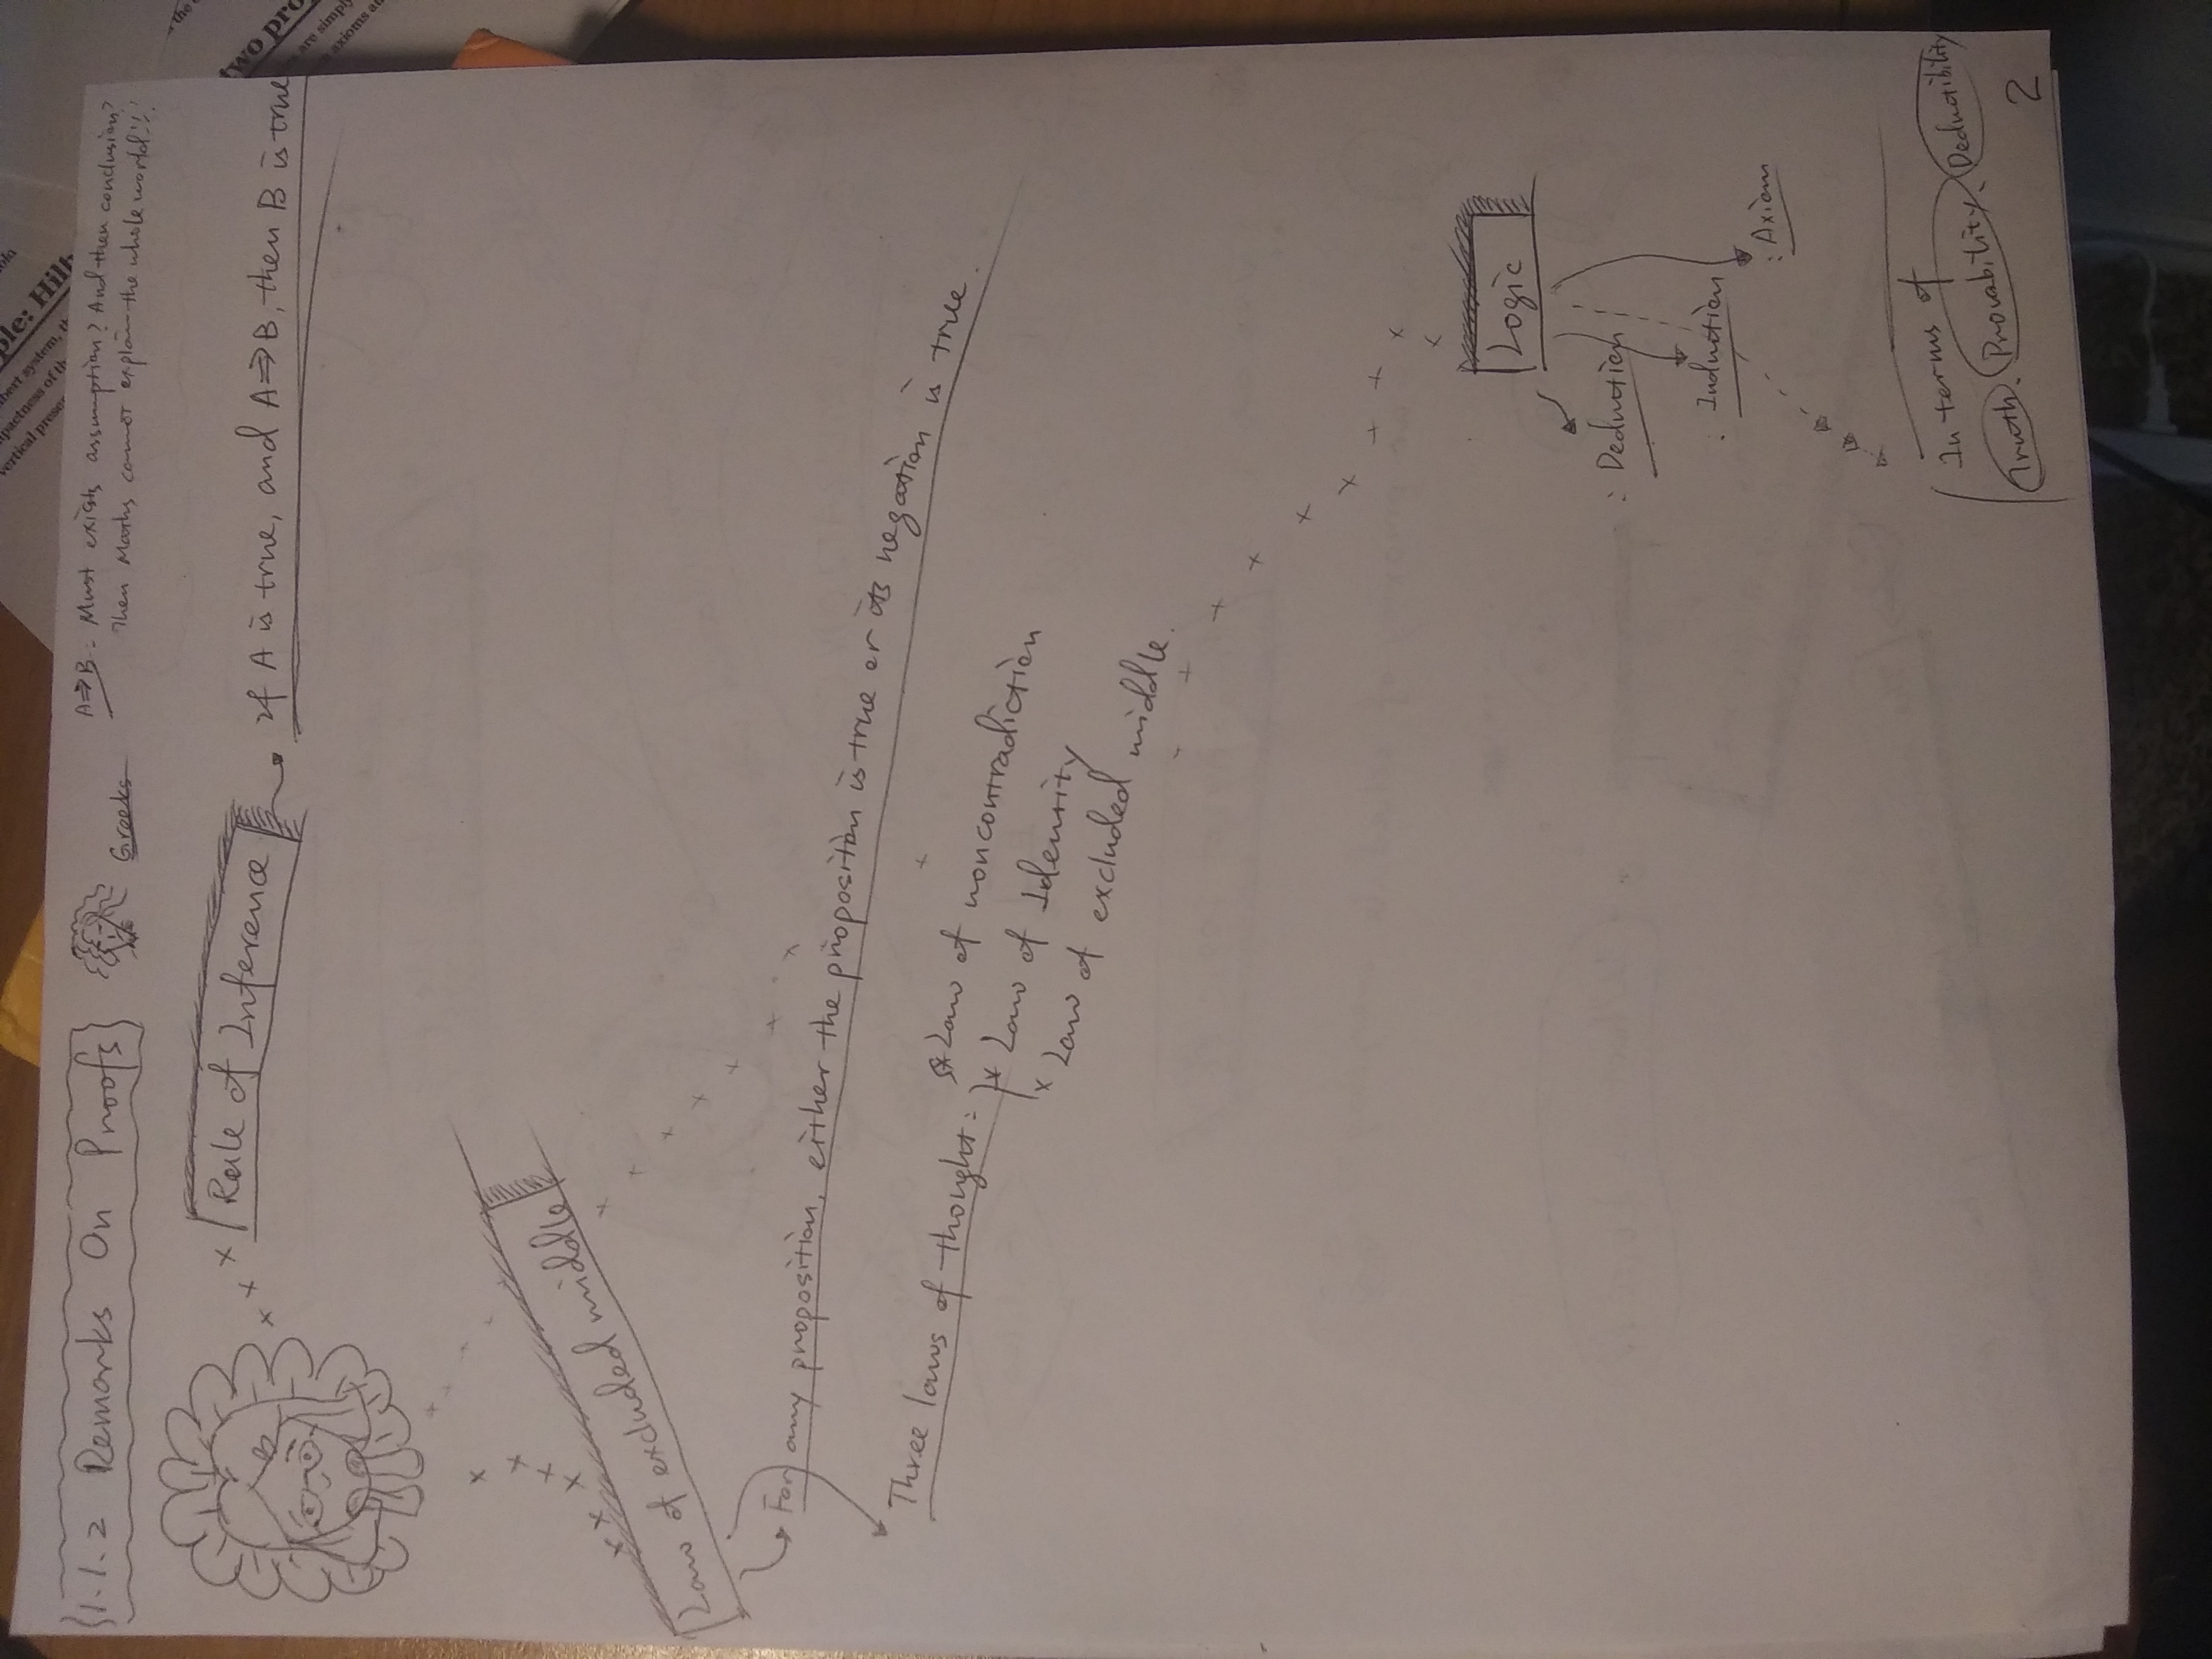 1.1.2 Remarks On Proofs
Greeks
A⇒B: Must exists assumption? And then conclusion?
Then Maths cannot explain the whole world!!!
Rule of Inference
If A is true, and A⇒B, then B is true
Law of excluded middle
For any proposition, either the proposition is true or its negation is true.
Three laws of thought:
* Law of noncontradiction
x Law of Identity
x Law of excluded middle.
Logic
: Deduction
: Induction
: Axiom
In terms of
Truth, Provability, Deductibility
2
ple: Hilb
bert system, th
mpactness of th
vertical presen
n the
two pro
are simply
axioms a